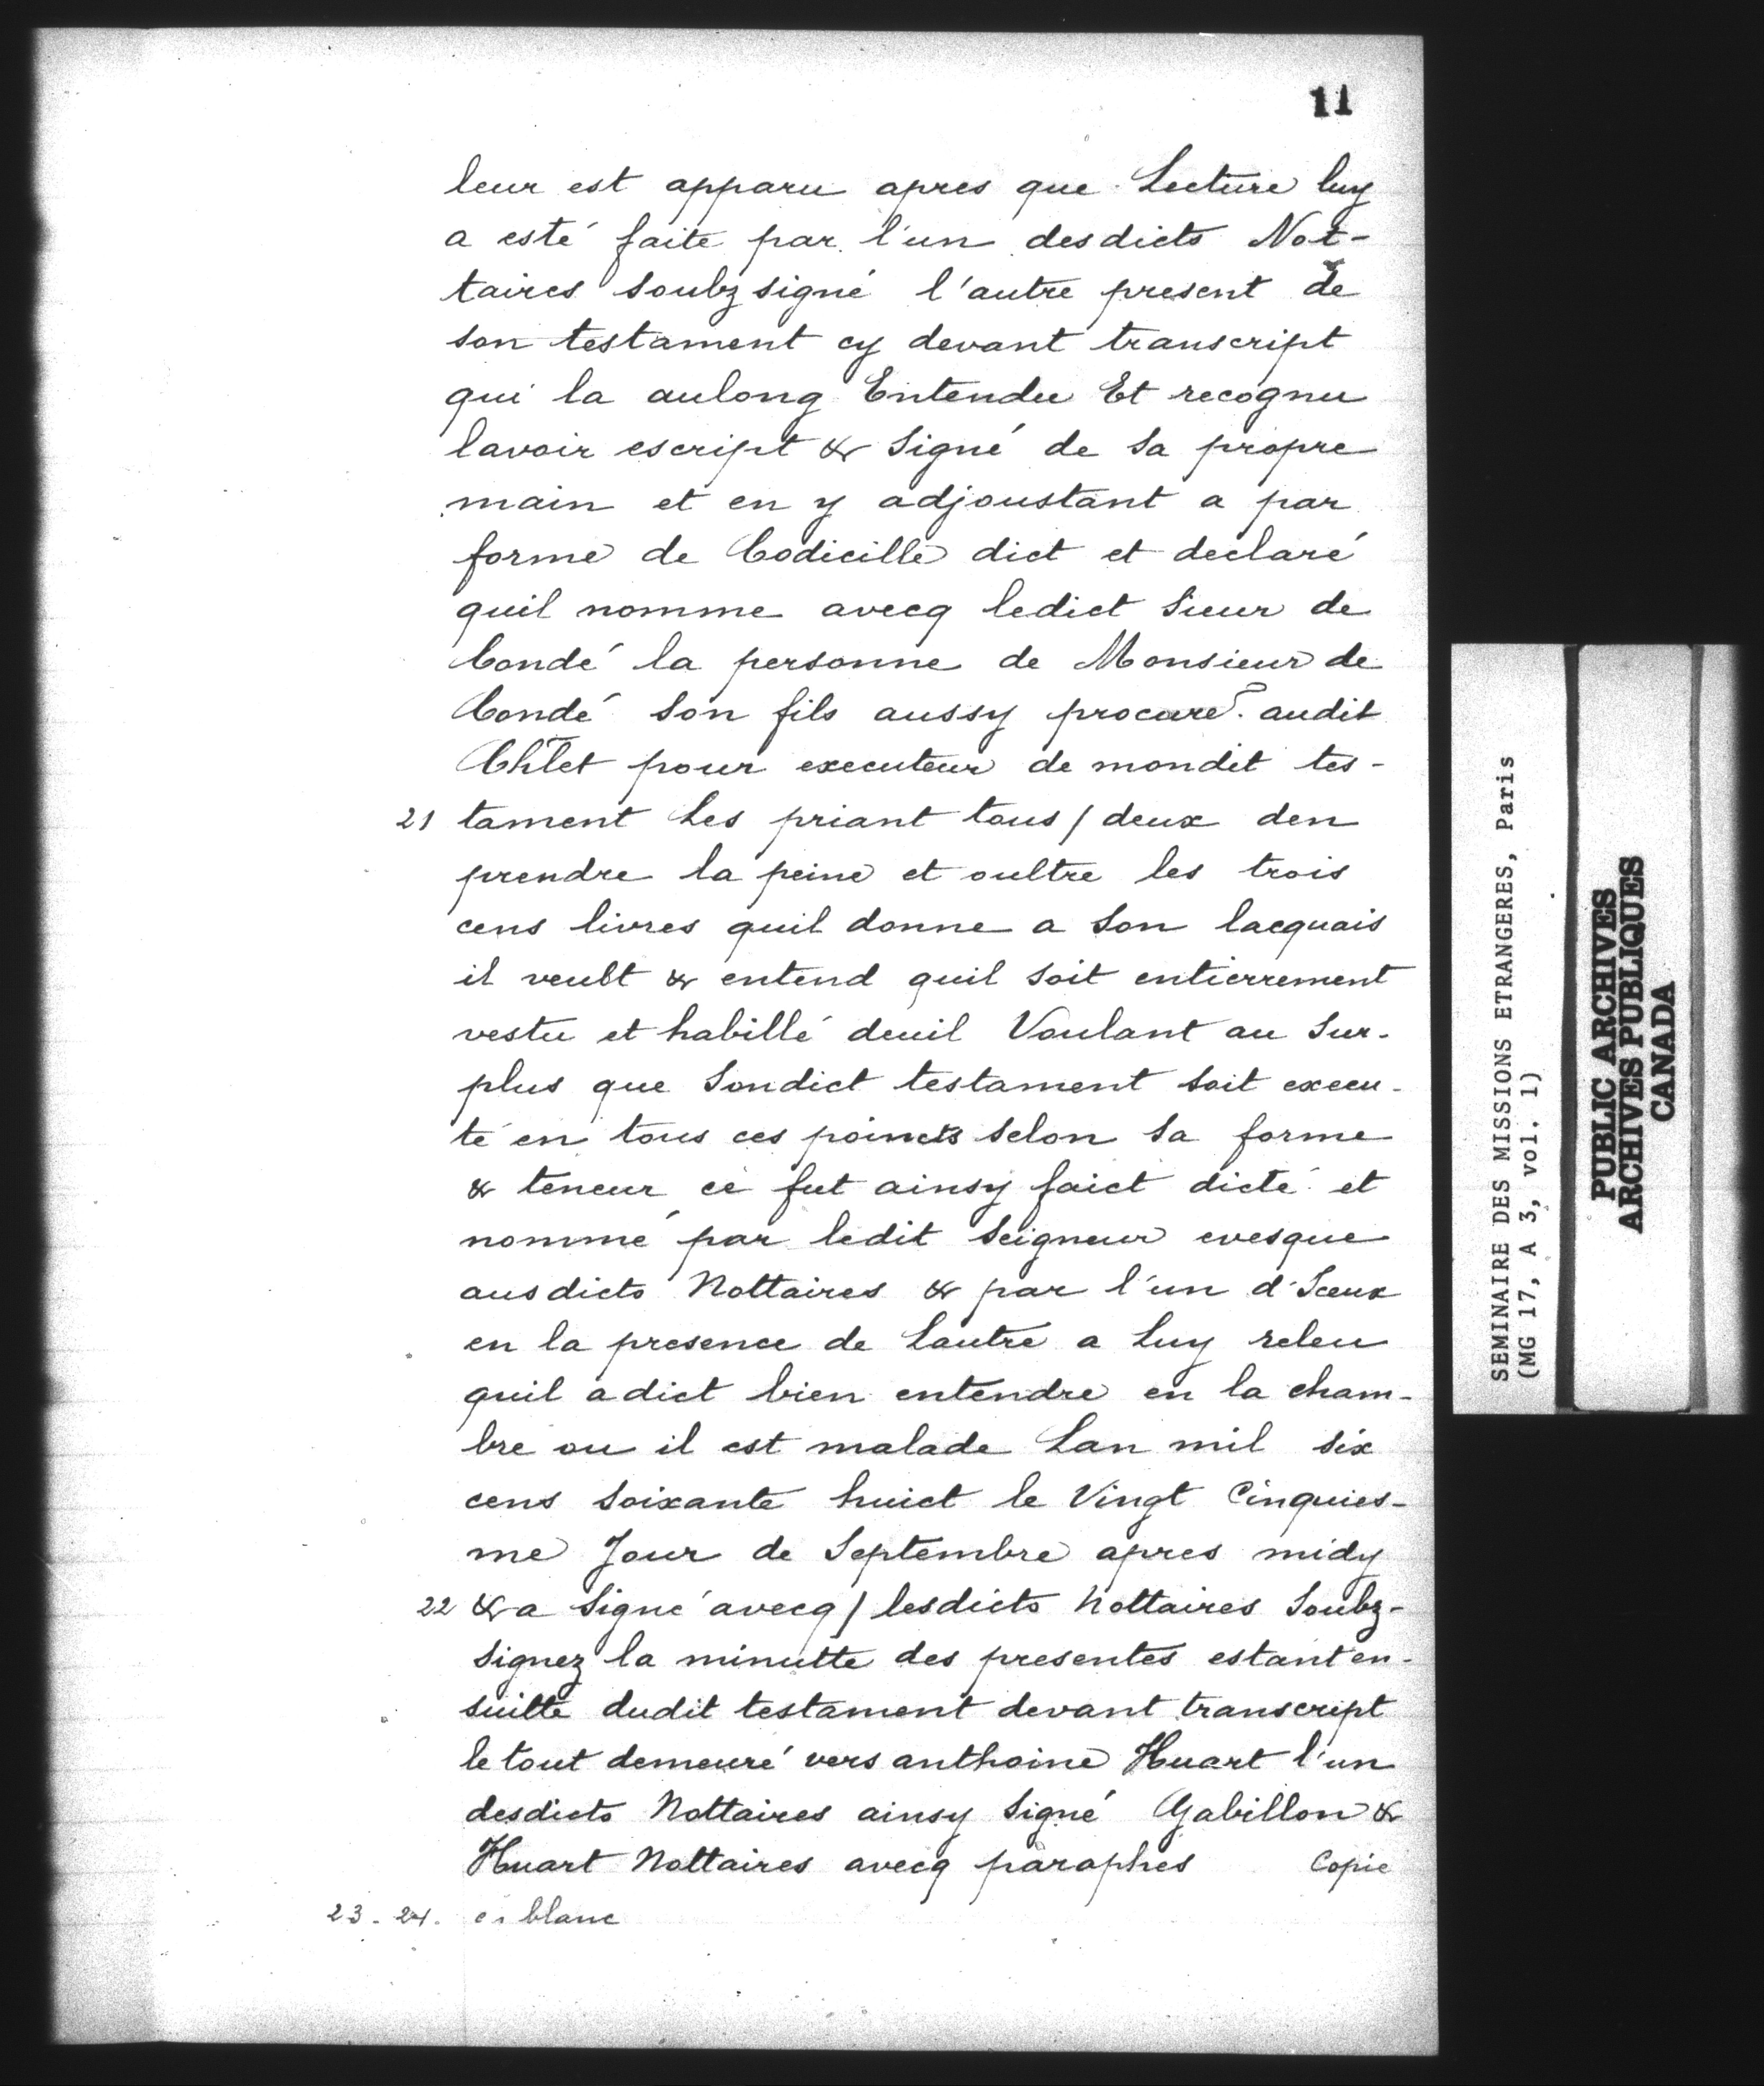 11
leur est apparu apres que Lecture luy
a esté faite par l'un desdicts Not-
taires soubzsigné l'autre present de
son testament cy devant transcript
qui la aulong Entendu Et recognu
lavoir escript & signé de sa propre
main et en y adjoustant a par
forme de Codicille dict et declaré
quil nomme avecq ledict sieur de
Condé la personne de Monsieur de
Condé son fils aussy procure. audit
Chlet pour executeur de mondit tes-
21 tament Les priant tous / deux den
prendre la peine et oultre les trois
cens livres quil donne a son lacquais
il veubt & entend quil soit entierrement
vestu et habillé deuil Voulant au sur-
plus que sondict testament soit execu-
té en tous ces poincts selon sa forme
& teneur ce fut ainsy faict dicté et
nommé par ledit seigneur evesque
ausdicts Nottaires & par l'un d'Iceux
en la presence de Lautre a Luy releu
quil a dict bien entendre en la cham-
bre ou il est malade Lan mil six
cens soixante huict le Vingt Cinquies-
me Jour de Septembre apres midy
22 & a signé avecq / lesdicts Nottaires soubz-
signez la minutte des presentes estant en-
suitte dudit testament devant transcript
le tout demeuré vers anthoine Huart l'un
desdicts Nottaires ainsy signé Gabillon &
Huart Nottaires avecq paraphes Copie
23. 24. en blanc
SEMINAIRE DES MISSIONS ETRANGERES, Paris
(MG 17, A 3, vol. 1)
PUBLIC ARCHIVES
ARCHIVES PUBLIQUES
CANADA